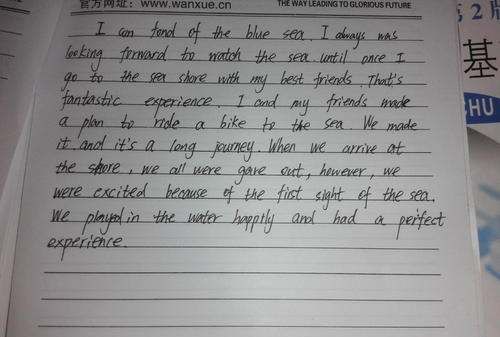 官方网址：www.wanxue.cn
THE WAY LEADING TO GLORIOUS FUTURE
第2版
基
CHU
I am fond of the blue sea. I always was
looking forward to watch the sea until once I
go to the sea shore with my best friends. That's
fantastic experience. I and my friends made
a plan to ride a bike to the sea. We made
it and it's a long journey. When we arrive at
the shore, we all were gave out, however, we
were excited because of the first sight of the sea.
We played in the water happily and had a perfect
experience.